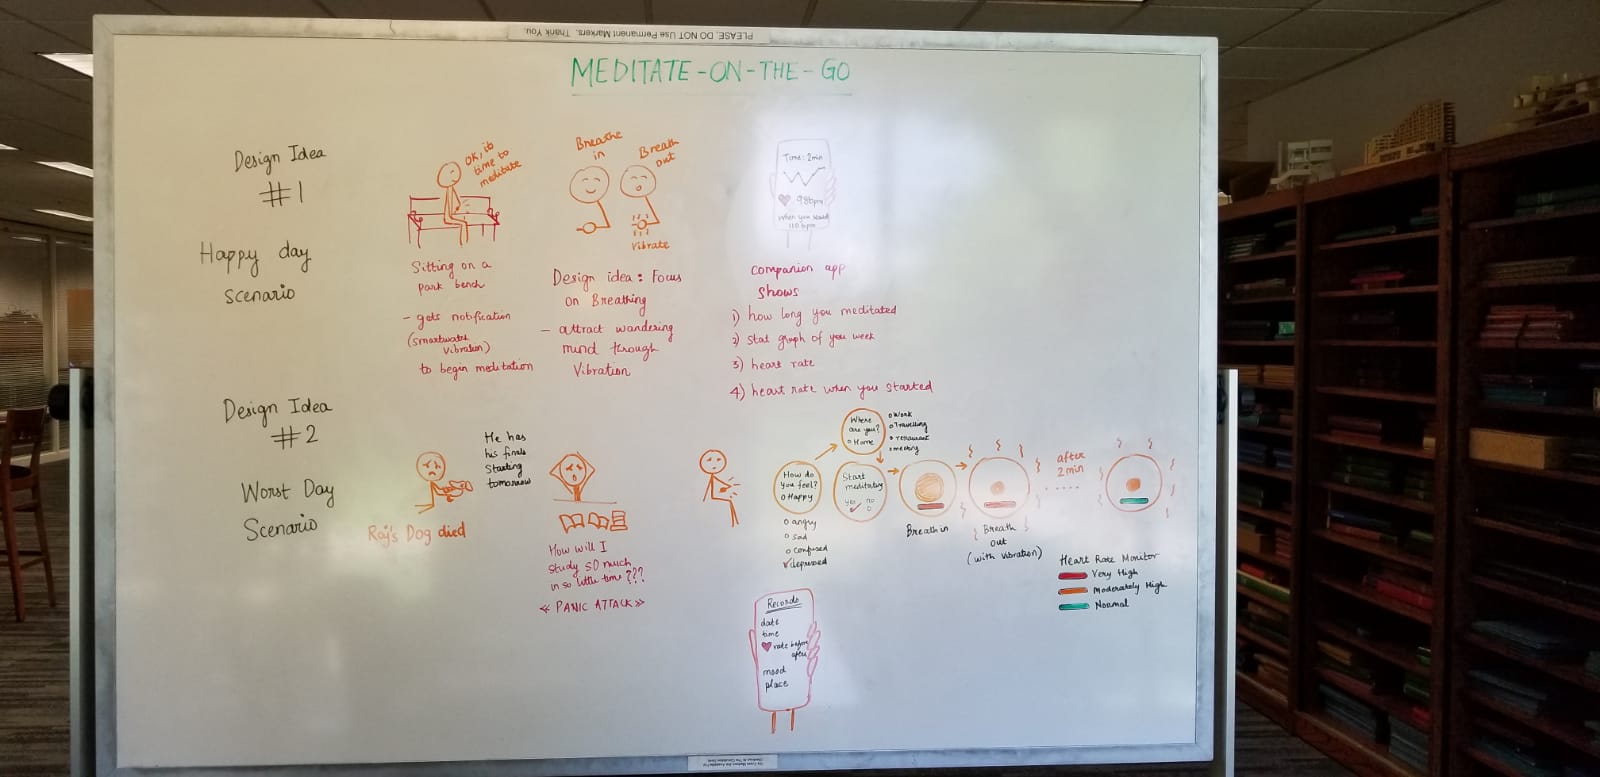 PLEASE, DO NOT Use Permanent Markers. Thank You.
MEDITATE-ON-THE-GO
Design Idea
#1
Happy day
Scenario
OK, its
time to
meditate
Sitting on a
park bench
- gets notification
(smartwatch
vibration)
to begin meditation
Breathe
in
Breath
out
Vibrate
Design idea: Focus
on Breathing
- attract wandering
mind through
Vibration
Time: 2min
98bpm
when you started
110 bpm
Companion app
shows
1) how long you meditated
2) stat graph of you week
3) heart rate
4) heart rate when you started
Design Idea
#2
Worst Day
Scenario
Raj's Dog died
He has
his finals
Starting
tomorrow
How will I
study SO much
in so little time ???
<< PANIC ATTACK >>
How do
you feel?
o Happy
o angry
o Sad
o Confused
✓depressed
Where
are you?
o Home
o Work
o Travelling
o restaurant
o meeting
Start
meditating
yes no
✓ o
Breath in
Breath
out
(with vibration)
after
2 min
.....
Heart Rate Monitor
Very High
Moderately High
Normal
Records
date
time
rate before
after
mood
place